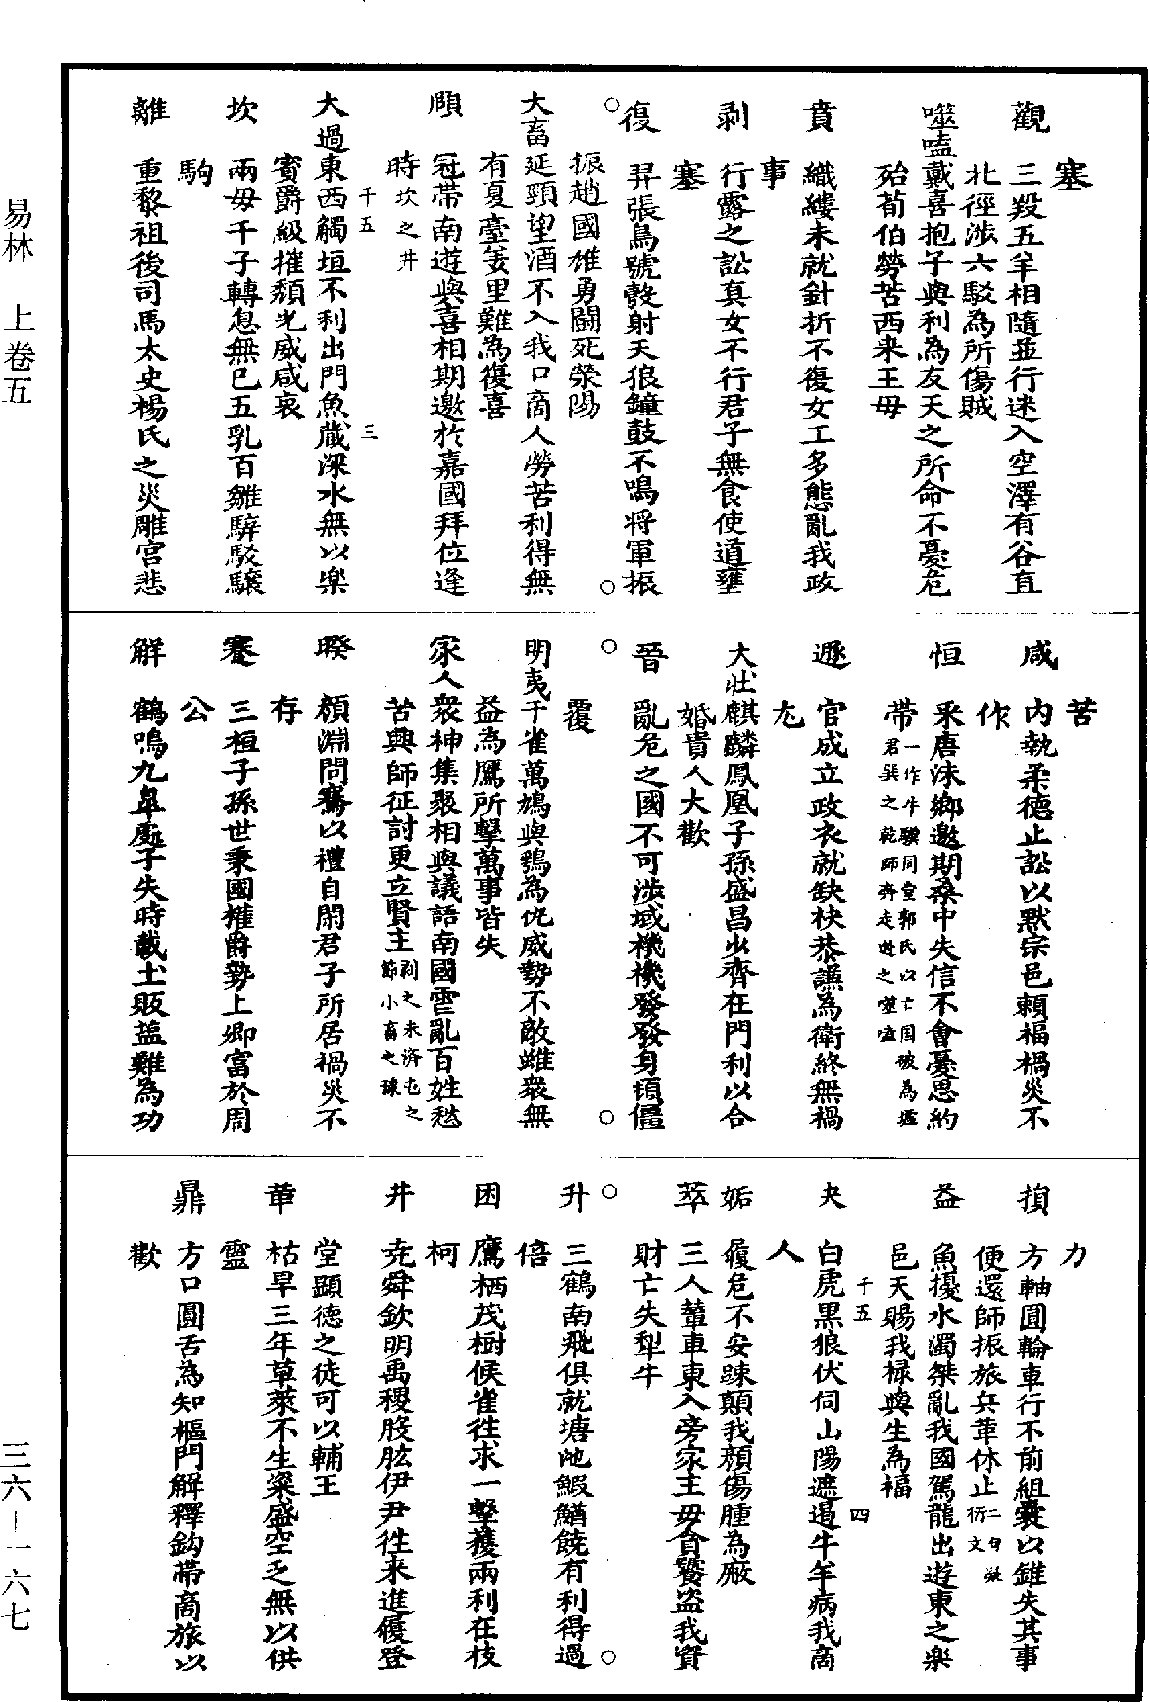 塞
觀　三羖五羊相隨並行迷入空澤有谷直
北徑涉六駮為所傷賊
噬嗑戴喜抱子與利為友天之所命不憂危
殆荀伯勞苦西來王母
賁　織縷未就針折不復女工多態亂我政
事
剥　行露之訟真女不行君子無食使道壅
塞
復　羿張烏號彀射天狼鐘鼓不鳴将軍振
振趙國雄勇鬬死滎陽
大畜延頸望酒不入我口商人勞苦利得無
有夏臺羑里難為復喜
頤　冠帶南遊與喜相期邀於嘉國拜位逢
時坎之井
千五　三
大過東西觸垣不利出門魚藏深水無以樂
賓爵級摧頽光威咸衰
坎　兩母千子轉息無已五乳百雛騂駮驤
駒
離　重黎祖後司馬太史楊氏之災雕宮悲
苦
咸　內執柔德止訟以默宗邑賴福禍災不
作
恒　采唐沬鄉邀期桑中失信不會憂思約
帶一作牛驥同堂郭氏以亡国破為墟君巽之乾師奔走遊之噬嗑
遯　官成立政衣就缺袂恭謙為衛終無禍
尤
大壯麒麟鳳凰子孫盛昌少齊在門利以合
婚貴人大歡
晉　亂危之國不可涉域機機發發身頓僵
覆
明夷千雀萬鳩與鷂為仇威勢不敵雖衆無
益為鷹所擊萬事皆失
家人衆神集聚相與議語南國虐亂百姓愁
苦興師征討更立賢主剥之未濟屯之節小畜之
睽　顏淵問騫以禮自閑君子所居禍災不
存
蹇　三桓子孫世秉國權爵勢上卿富於周
公
解　鶴鳴九皐處子失時載土販盐難為功
力
損　方軸圓輪車行不前組囊以錐失其事
便還師振旅兵革休止二句衍文
益　魚擾水濁桀亂我國駕龍出遊東之樂
邑天賜我祿與生為福
千五　四
夬　白虎黑狼伏伺山陽遮遏牛羊病我商
人
姤　履危不安踈顛我顏傷腫為厰
萃　三人輦車東入旁家主母貪饕盗我資
財亡失犁牛
升　三鶴南飛俱就塘池鰕鰌饒有利得過
倍
困　鷹栖茂樹候雀往求一擊獲兩利在枝
柯
井　尭舜欽明禹稷股肱伊尹往来進履登
堂顯德之徒可以輔王
革　枯旱三年草萊不生粢盛空乏無以供
靈
鼎　方口圓舌為知樞門解釋鈎帶商旅以
歡
易林　上卷五
三六－一六七